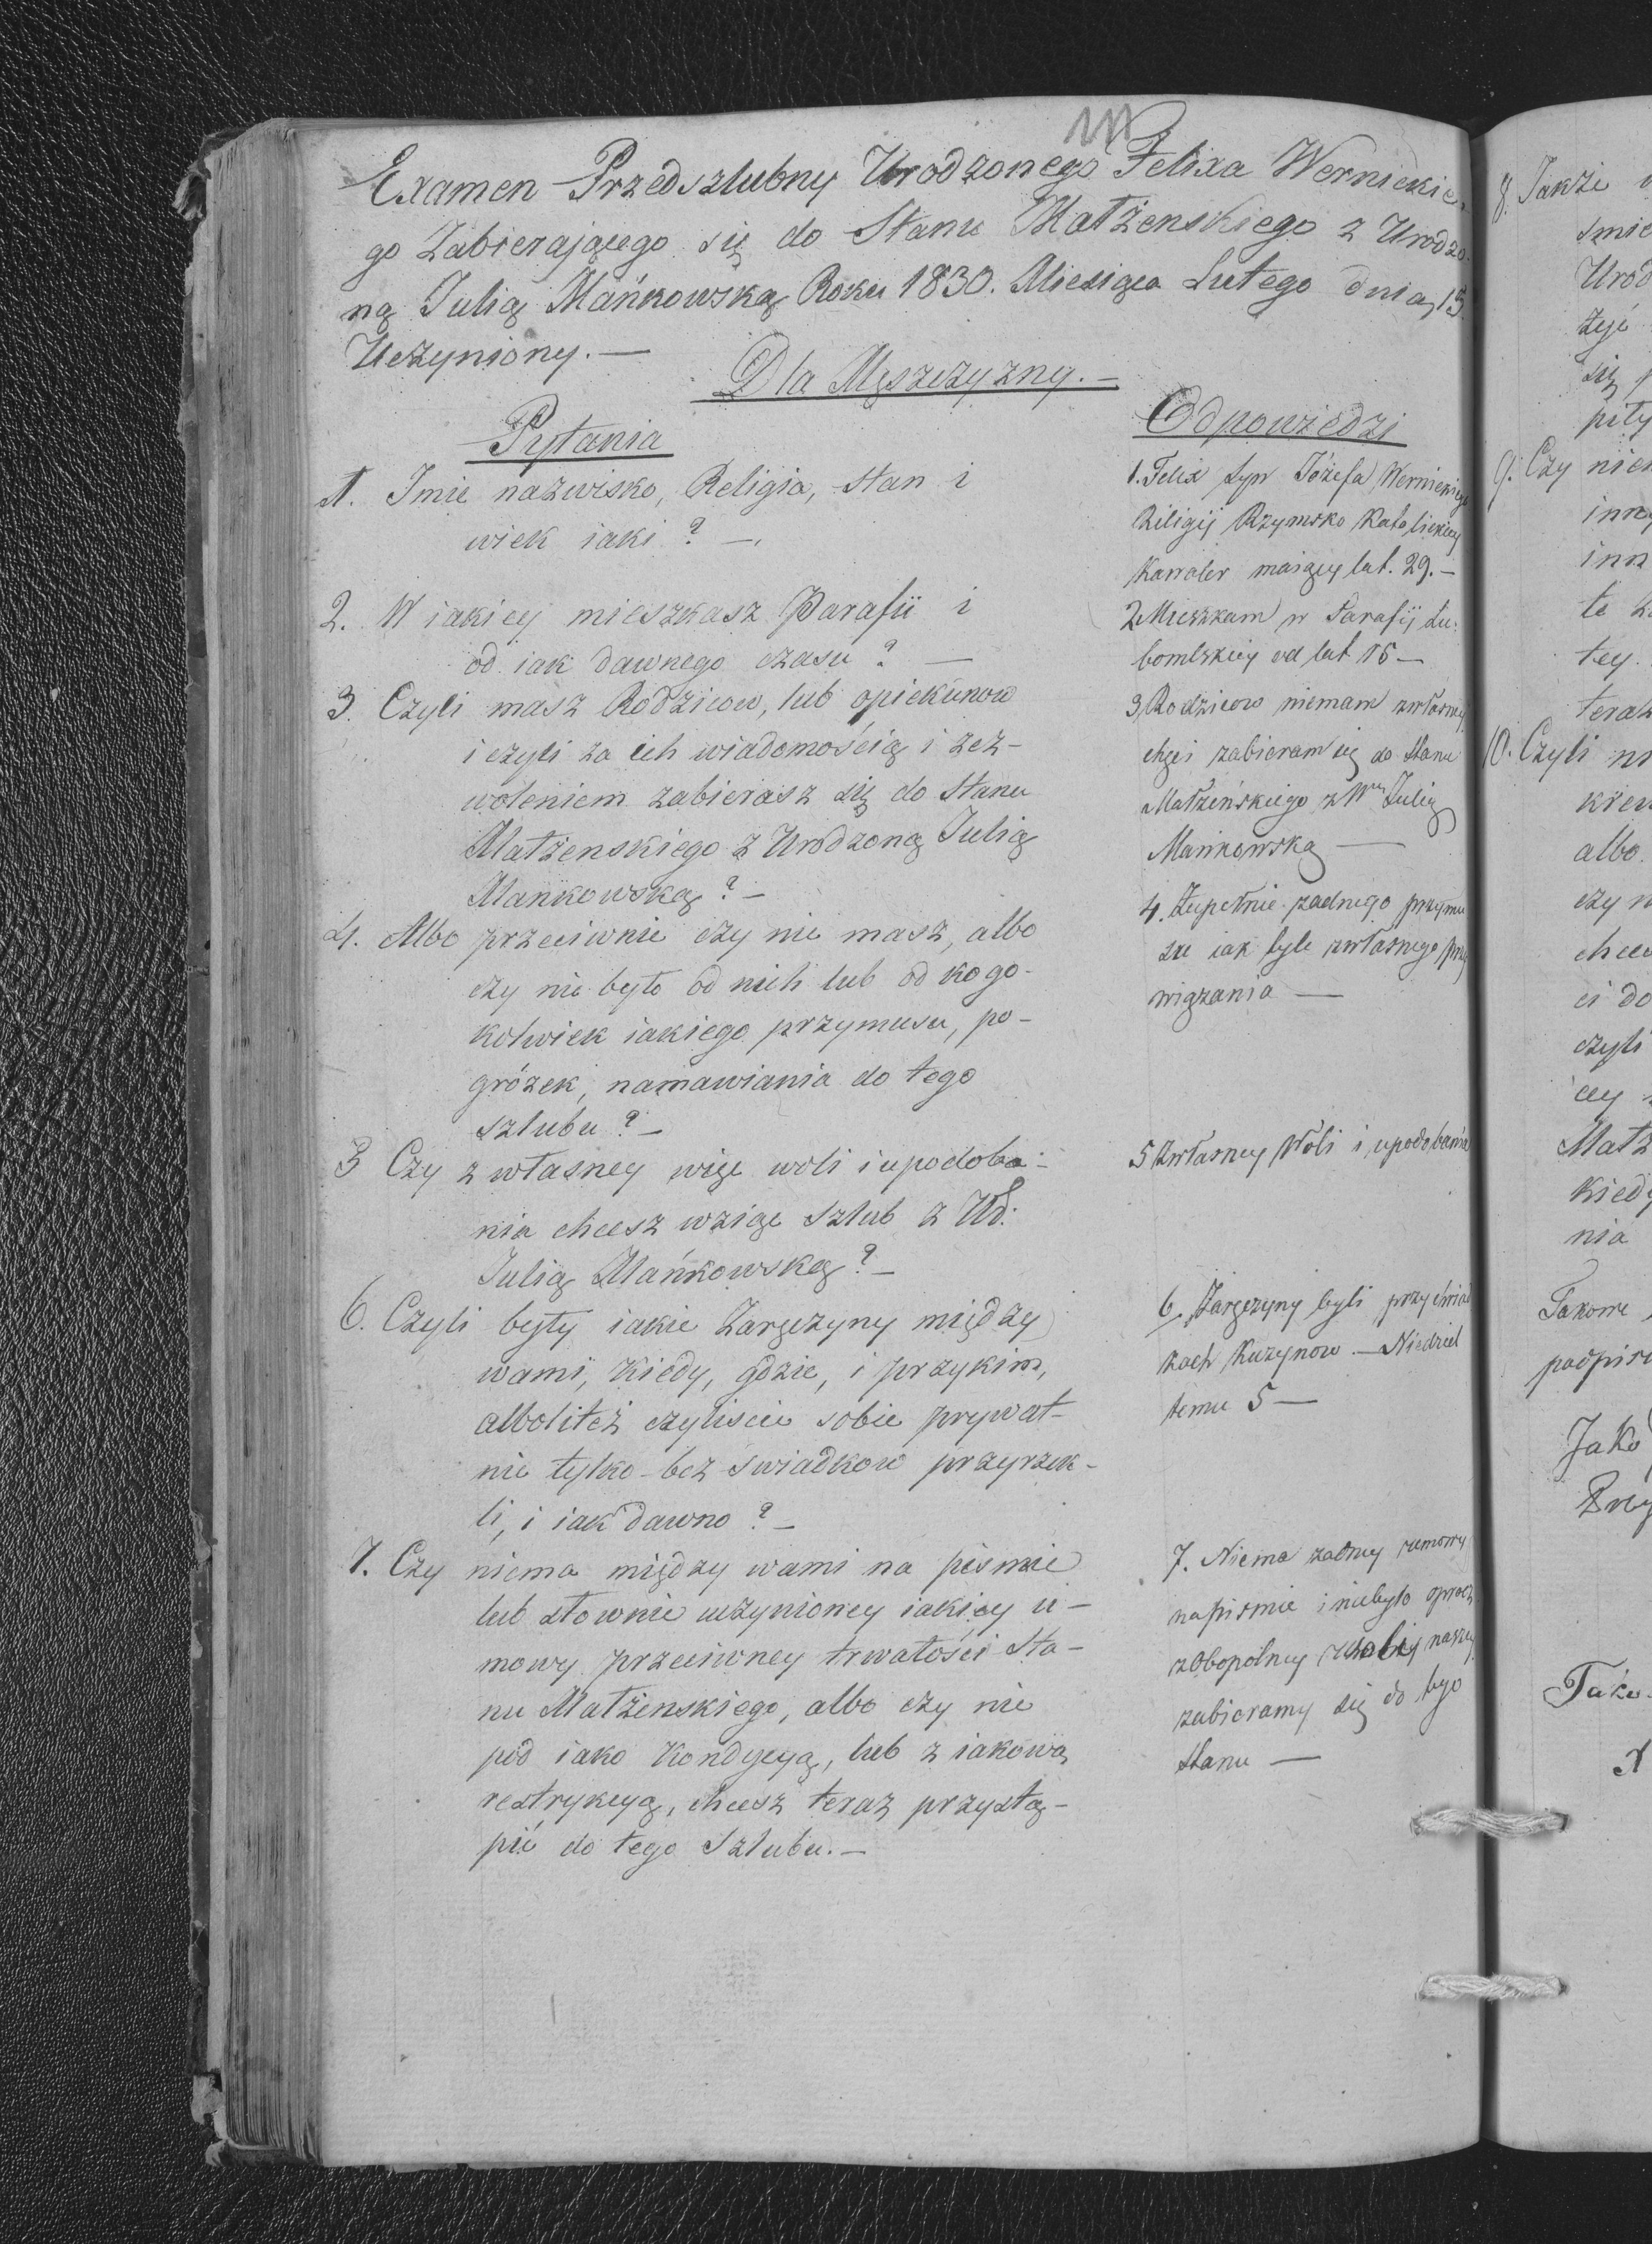 Examen Przedszlubny Urodzonego Felixa Wernickie-
go Zabierającego się do Stanu Małżenskiego z Urodzo-
ną Julią Mańkowską Roku 1830. Miesiąca Lutego dnia 15.
Uczyniony. —
Dla Męszczyzny. —
Pytania
1. Imie nazwisko, Religia, stan i
wiek iaki ? —
2. W iakiey mieszkasz Parafii i
od iak dawnego czasu ? —
3. Czyli masz Rodzicow, lub opiekunow
i czyli za ich wiadomością i zez-
woleniem zabierasz się do Stanu
Małżenskiego z Urodzoną Julią
Mańkowską ? —
4. Albo przeciwnie czy nie masz, albo
czy nie było od nich lub od kogo-
kolwiek iakiego przymusu, po-
gróżek, namawiania do tego
szlubu ? —
5 Czy z własney więc woli i upodoba-
nia chcesz wziąc szlub z Ud:
Julią Mańkowską ? —
6. Czyli były iakie Zaręczyny między
wami, kiedy, gdzie, i przykim,
albolitеż czyliscie sobie prywat-
nie tylko bez swiadkow przyrzek-
li, i iak dawno ? —
7. Czy niema między wami na pismie
lub słownie uczynioney iakiey u-
mowy przeciwney trwałości Sta-
nu Małżenskiego, albo czy nie
pod iako Kondycyą, lub z iakową
restrykcyą, chcesz teraz przystą-
pić do tego Szlubu. —
Odpowiedzi
1. Felix syn Józefa Wernickiego
Religij Rzymsko Katolickiey
Kawaler maiący lat. 29. —
2 Mieszkam w Parafij Lu-
bomlskiey od lat 15 —
3 Rodzicow niemam zwłasney
chęci zabieram się do Stanu
Małżeńskiego z Julią
Mańkowską —
4. Zupełnie zadnego przymu
su iak tyle zwłasnego przy
wiązania —
5 Zwłasney Woli i upodobania
6. Zaręczyny byli przy swiad
kach Kuzynow — Niedziel
temu 5 —
7. Niema zadney umowy
napismie i niebyło oprocz
zobopolney naszey
zabieramy się do tego
stanu —
8. Jakże
Urod
żyć
się
9. Czy
inn
te
tey
teraz
10. Czyli
albo
czy
ci do
czyli
cey
Małż
kiedy
nia
Takowe
podpisu
Jako